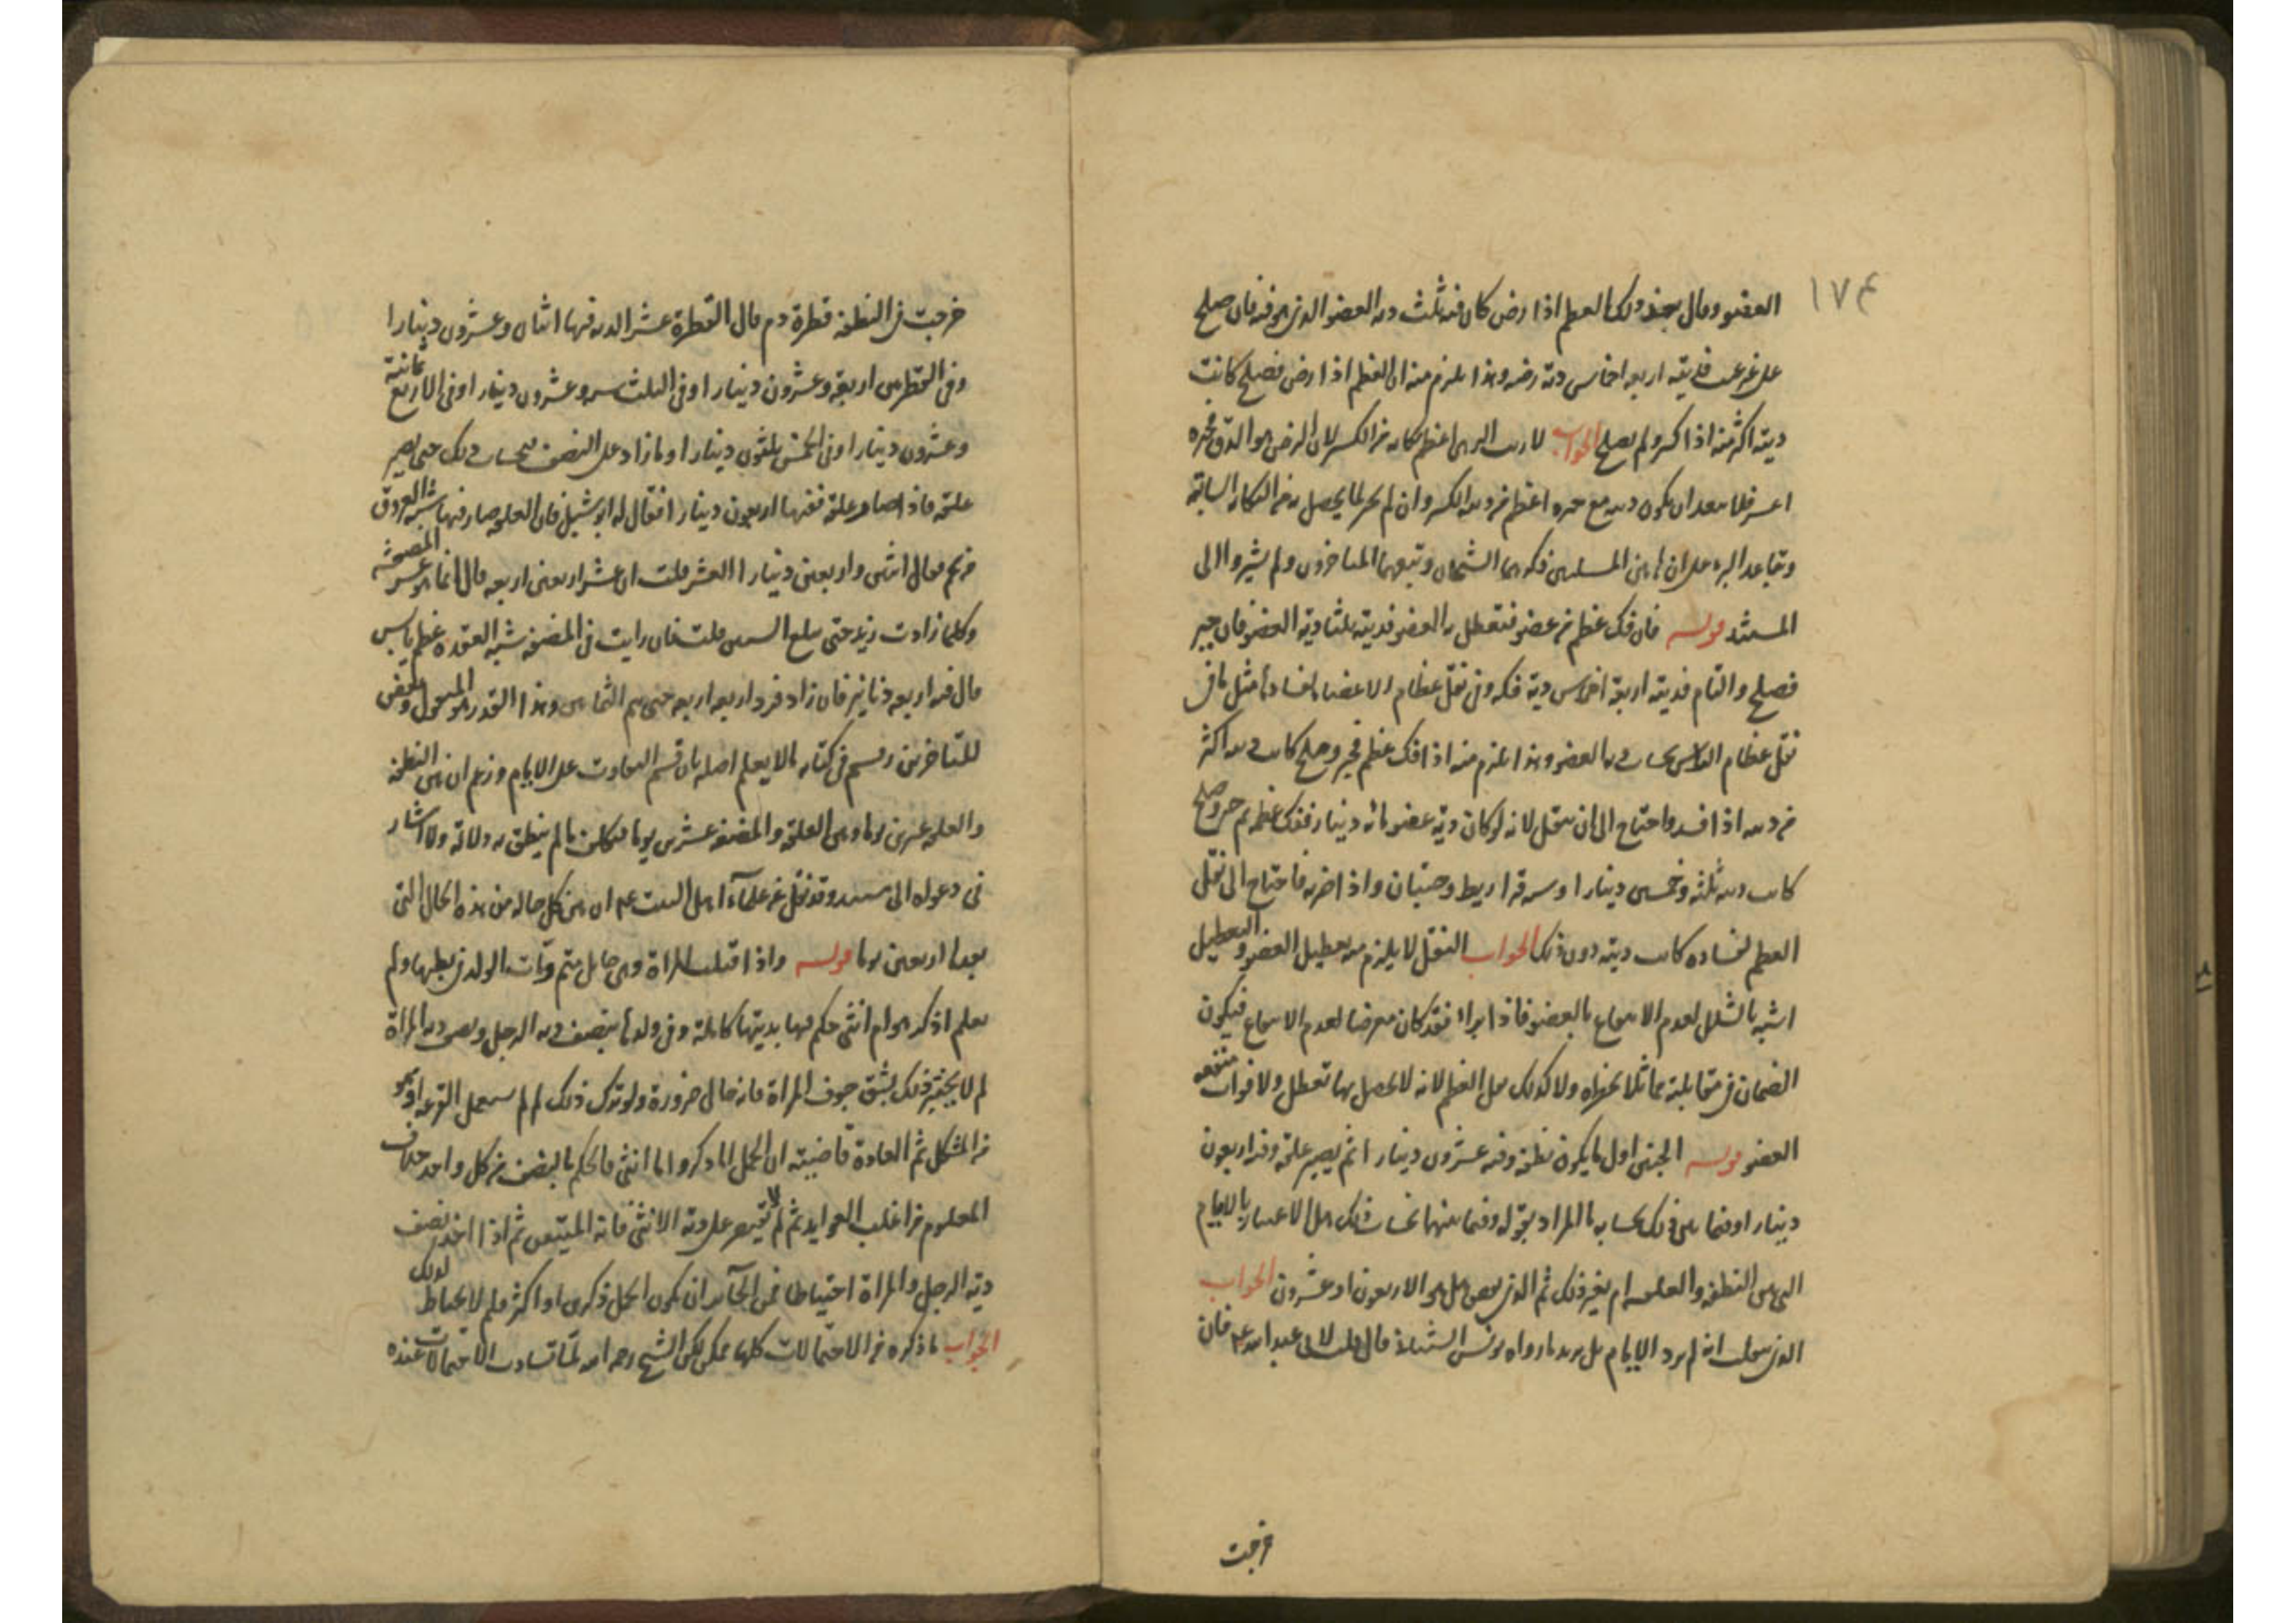 ١٧٤
العضو وقال بعد ذلك العظم اذا رض كان فيه ثلث دية العضو الذى هو فيه فان صلح
على غير عيب فديته اربعة اخماس دية رضه وهذا يلزم منه ان العظم اذا رض فصلح كانت
ديته اكثر منه اذا كسر ولم يصلح الجواب لا ريب ان الرض اعظم نكاية من الكسر لان الرض هو الدق فجبره
اعسر فلا يبعد ان يكون ديته مع جبره اعظم من دية الكسر وان لم يجبر لما يحصل به من النكاية السابقة
وتباعد البرء على ان هاتين المسئلتين ذكرهما الشيخان وتبعهما المتاخرون ولم يشيروا الى
المستند قوله فان فك عظم من عضو فتعطل به العضو فديته ثلثا دية العضو فان جبر
فصلح والتام فديته اربعة اخماس دية فكه وفى نقل عظام الاعضاء لفسادها مثل ما فى
نقل عظام الراس بحساب دية العضو وهذا يلزم منه اذا فك عظم فجبر وصلح كانت ديته اكثر
من ديته اذا فسد واحتاج الى ان ينقل لانه لو كان دية عضو مائة دينار ففك عظمه ثم جبر وصلح
كانت ديته ثلثة وخمسين دينارا وستة قراريط وحبتان واذا ضربه فاحتاج الى نقل
العظم لفساده كانت ديته دون ذلك الجواب النقل لا يلزم منه تعطيل العضو والتعطيل
اشبه بالشلل لعدم الانتفاع بالعضو فاذا ابراه فقد كان معرضا لعدم الانتفاع فيكون
الضمان فى مقابلته مماثلا لجزائه ولا كذلك نقل العظم لانه لا يحصل بها تعطل ولا فوات منفعة
العضو قوله الجنين اول ما يكون نطفة وفيه عشرون دينارا ثم يصير علقة وفيه اربعون
دينارا وفيما بين ذلك بحسابه ما المراد بقوله وفيما بينهما بحساب ذلك هل الاعتبار بالايام
التى بين النطفة والعلقة ام بغير ذلك ثم الذى يوصل هل هو الاربعون او عشرون الجواب
الذى ان لم يرد الايام بل يريد ما رواه يونس الشيبانى قال قلت لابى عبد الله ع فان
خرجت
خرجت فى النطفة قطرة دم قال القطرة عشر الدية فيها اثنان وعشرون دينارا
وفى القطرتين اربعة وعشرون دينارا وفى الثلث ستة وعشرون دينارا وفى الاربع ثمانية
وعشرون دينارا وفى الخمس ثلثون دينارا وما زاد على النصف بحساب ذلك حتى يصير
علقة فاذا صار علقة ففيها اربعون دينارا فقال له ابو شبل فان العلقة صار فيها شبه العروق
من لحم قال اثنين واربعين دينارا العشر قلت ان عشر اربعين اربعة قال انما هو عشر المضغة
وكلما زادت زيد حتى تبلغ الستين قلت فان رايت فى المضغة شبه العقدة عظم يابس
قال فيه اربعة دنانير فان زاد فزد اربعة اربعة حتى يتم الثمانين وهذا القدر هو المعول وبعض
المتاخرين رسم فى كتابه ما لا يعلم اصله بان قسم التفاوت على الايام وزعم ان بين النطفة
والعلقة عشرين يوما وبين العلقة والمضغة عشرين يوما فتكلف ما لم ينطق به دلالة ولا اشار
فى دعواه الى مستند وقد نقل عن علماء اهل البيت ع ان بين كل حالة من هذه الحال التى
بعدها اربعين يوما قوله واذا قتلت المراة وهى حامل متم ومات الولد فى بطنها ولم
يعلم اذكر هو ام انثى حكم فيها بديتها كاملة وفى ولدها بنصف دية الرجل ونصف دية المراة
لم لا يختبر ذلك بشق جوف المراة فانه حال ضرورة ولو ترك ذلك لم لم يستعمل القرعة اوهو
من المشكل ثم العادة قاضية ان الحمل اما ذكر واما انثى فالحكم بالنصف من كل واحد خلاف
المعلوم من اغلب العوايد ثم لم لا يقتصر على دية الانثى فانه المتيقن ثم اذا اخذ نصف
دية الرجل والمراة احتياطا فمن الجائز ان يكون الحمل ذكرين او اكثر فلم لا يحتاط لذلك
الجواب ما ذكره من الاحتمالات كلها ممكن لكن الشيخ رحمه الله لما تساوت الاحتمالات عنده